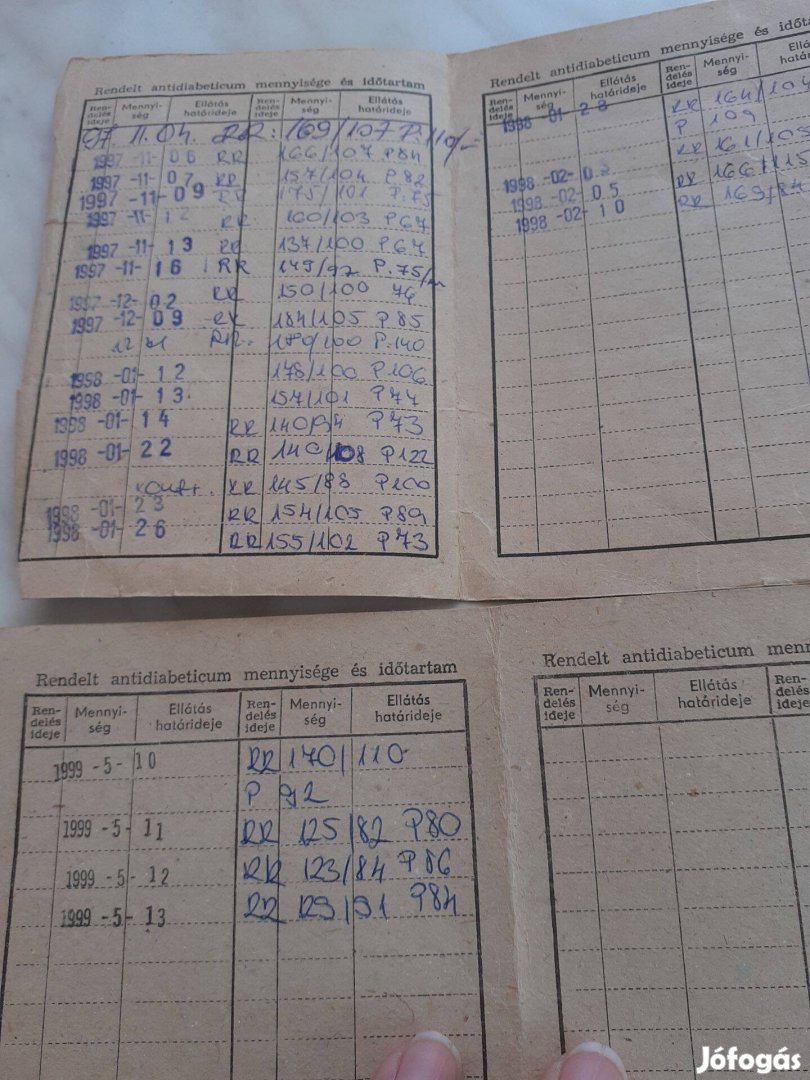 Rendelt antidiabeticum mennyisége és időtartam
Ren-delés ideje Mennyi-ség Ellátás határideje Ren-delés ideje Mennyi-ség Ellátás határideje
97. 11.04. RR: 169/107 P.110/
1997 -11- 06 RR 166/107 P84
1997 -11- 07 RR 157/104 P82
1997 -11- 09 RR 175/101 P.75
1997 -11- 12 RR 160/103 P67
1997 -11- 13 RR 137/100 P67
1997 -11- 16 RR 149/92 P.75/m
1997 -12- 02 RR 150/100 76
1997 -12- 09 RR 184/105 P85
12 RR. /100 P.140
1998 -01- 12 178/100 P106
1998 -01- 13 157/101 P77
1998 -01- 14 RR 140/94 P73
1998 -01- 22 RR 140/108 P122
kontr. RR 145/88 P100
1998 -01- 23 RR 154/105 P89
1998 -01- 26 RR 155/102 P73
Rendelt antidiabeticum mennyisége és
Ren-delés ideje Mennyi-ség Ellátás határideje Ren-delés ideje Mennyi-ség
1998 -01- 28 RR 164/104
P 109
RR 161/
1998 -02- RR 166/115
1998 -02- 05 RR 169/84
1998 -02- 10
Rendelt antidiabeticum mennyisége és időtartam
Ren-delés ideje Mennyi-ség Ellátás határideje Ren-delés ideje Mennyi-ség Ellátás határideje
1999 -5- 10 RR 170/110
P 92
1999 -5- 11 RR 125/82 P80
1999 -5- 12 RR 123/84 P86
1999 -5- 13 RR 129/91 P84
Rendelt antidiabeticum
Ren-delés ideje Mennyi-ség Ellátás határideje Ren-delés ideje
Jófogás